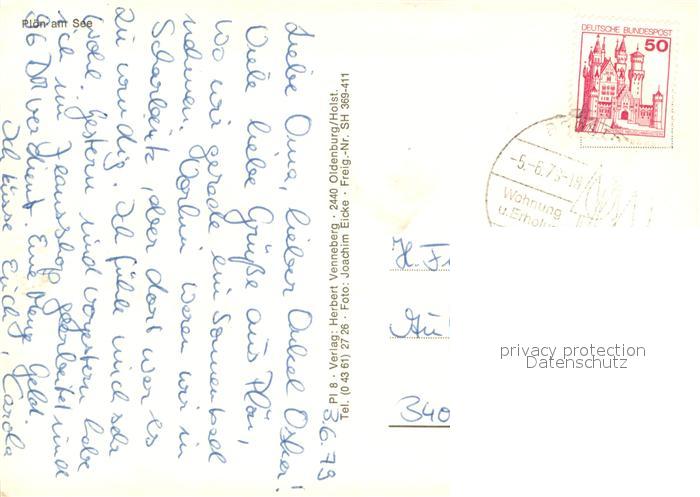 Plön am See
3.6.79
Liebe Oma, lieber Onkel Oskar!
Viele liebe Grüße aus Plön,
wo wir gerade ein Sonnenbad
nehmen. Vorhin waren wir in
Scharbeutz, aber dort war es
zu windig. Ich fühle mich sehr
wohl. Gestern und vorgestern habe
ich im
gearbeitet und
66 DM verdient. Eine Menge Geld.
Ich küsse Euch, Carola
Pl 8 · Verlag: Herbert Venneberg · 2440 Oldenburg/Holst.
Tel. (0 43 61) 27 26 · Foto: Joachim Eicke · Freig.-Nr. SH 369-411
DEUTSCHE BUNDESPOST
50
-5.-6.79-18
Wohnung
u. Erholu
H. Fr
340
privacy protection
Datenschutz